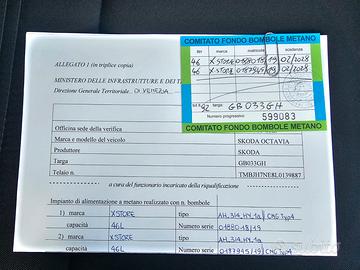 ALLEGATO 1 (in triplice copia)
MINISTERO DELLE INFRASTRUTTURE E DEI
Direzione Generale Territoriale. DI VENEZIA
COMITATO FONDO BOMBOLE METANO
lt/l marca matricola scadenza
46 XSTORE 0188018/19 02/2028
46 XSTORE 0187945/19 02/2028
92 targa GB033GH
Numero progressivo 599083
COMITATO FONDO BOMBOLE METANO
Officina sede della verifica
Marca e modello del veicolo SKODA OCTAVIA
Produttore SKODA
Targa GB033GH
Telaio n. TMBJH7NE8L0139887
a cura del funzionario incaricato della riqualificazione
Impianto di alimentazione a metano realizzato con n. bombole
1) marca XSTORE tipo AH_314_HY_1a/CNG Typ4
capacità 46L Numero serie 0188018/19
2) marca XSTORE tipo AH_314_HY_1a
capacità 46L Numero serie 0187945/19/CNG Typ4